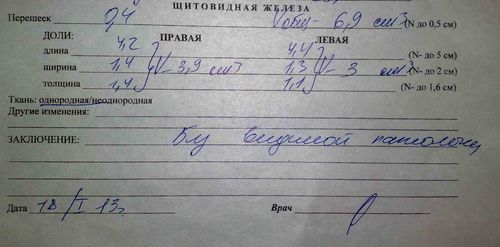 ЩИТОВИДНАЯ ЖЕЛЕЗА
Перешеек 0,4 Vобщ - 6,9 см3 (N до 0,5 см)
ДОЛИ: ПРАВАЯ ЛЕВАЯ
длина 4,2 4,4 (N- до 5 см)
ширина 1,4 V- 3,9 см3 1,3 V- 3 см3 (N- до 2 см)
толщина 1,4 1,1 (N- до 1,6 см)
Ткань: однородная/неоднородная
Другие изменения:
ЗАКЛЮЧЕНИЕ: Без видимой патологии
Дата 18/I 13г. Врач